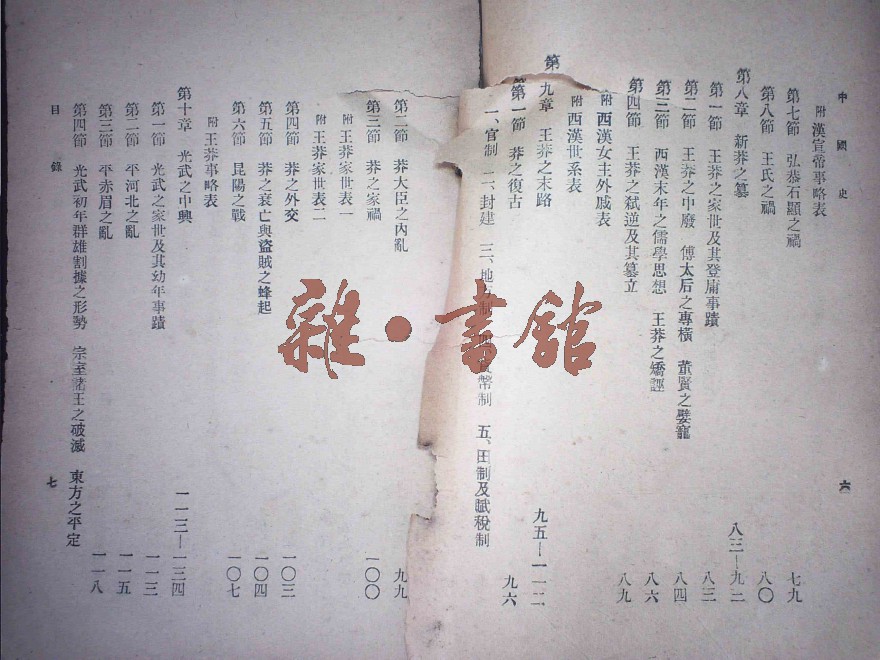 中國史
六
附 漢宣帝事略表
第七節 弘恭石顯之禍 七九
第八節 王氏之禍 八〇
第八章 新莽之篡 八三—九二
第一節 王莽之家世及其登庸事蹟 八三
第二節 王莽之中廢 傅太后之專橫 董賢之嬖寵 八四
第三節 西漢末年之儒學思想 王莽之矯誣 八六
第四節 王莽之弒逆及其篡立 八九
附 西漢女主外戚表
附 西漢世系表
第九章 王莽之末路 九五—一一二
第一節 莽之復古 九六
一、官制 二、封建 三、地方制 四、貨幣制 五、田制及賦稅制
第二節 莽大臣之內亂 九九
第三節 莽之家禍 一〇〇
附 王莽家世表一
附 王莽家世表二
第四節 莽之外交 一〇三
第五節 莽之衰亡與盜賊之蜂起 一〇四
第六節 昆陽之戰 一〇七
附 王莽事略表
第十章 光武之中興 一一三—一三四
第一節 光武之家世及其幼年事蹟 一一三
第二節 平河北之亂 一一五
第三節 平赤眉之亂
第四節 光武初年群雄割據之形勢 宗室諸王之破滅 東方之平定 一一八
目錄
七
雜•書館